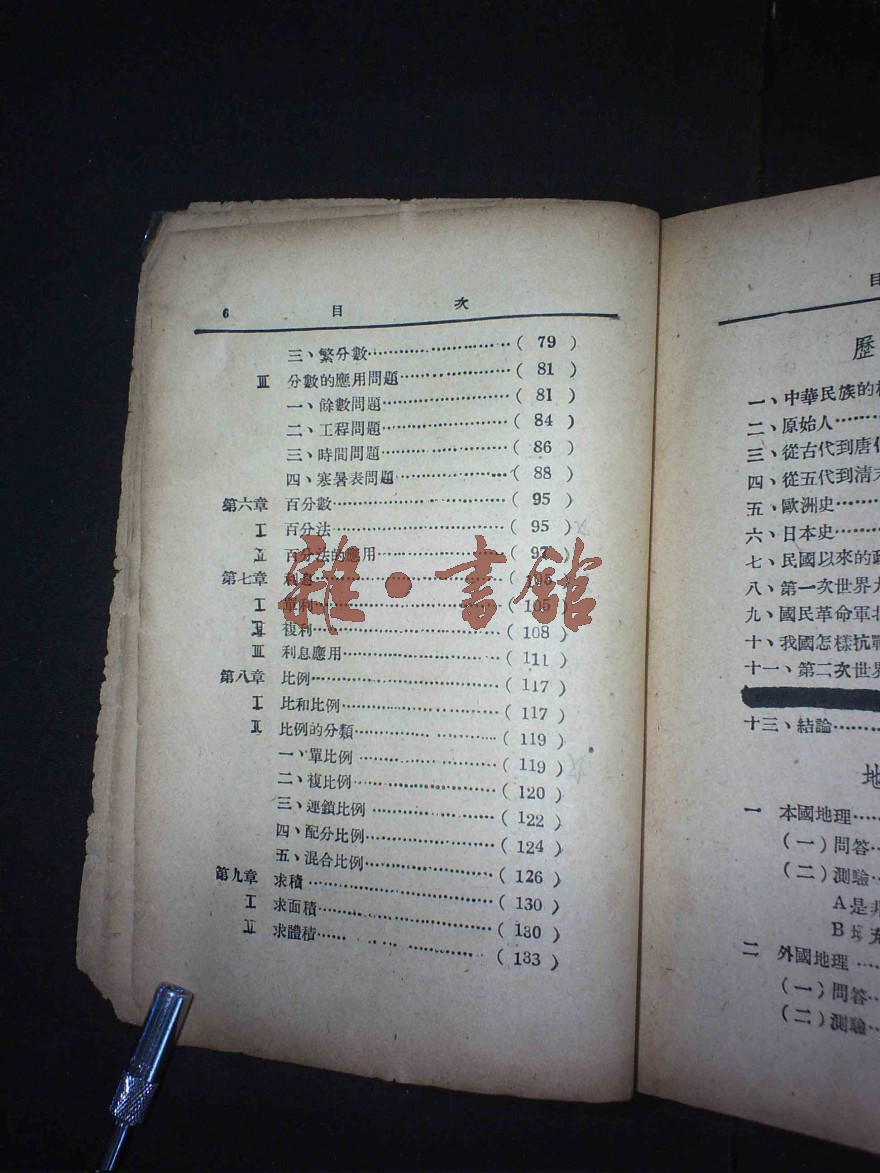 6 目 次
三、繁分數……………………( 79 )
Ⅲ 分數的應用問題………………( 81 )
一、餘數問題…………………( 81 )
二、工程問題…………………( 84 )
三、時間問題…………………( 86 )
四、寒暑表問題………………( 88 )
第六章 百分數…………………………( 95 )
Ⅰ 百分法…………………………( 95 )
Ⅱ 百分法的應用…………………( 97 )
第七章 利息……………………………( 105 )
Ⅰ 單利……………………………( 105 )
Ⅱ 複利……………………………( 108 )
Ⅲ 利息應用………………………( 111 )
第八章 比例……………………………( 117 )
Ⅰ 比和比例………………………( 117 )
Ⅱ 比例的分類……………………( 119 )
一、單比例……………………( 119 )
二、複比例……………………( 120 )
三、連鎖比例…………………( 122 )
四、配分比例…………………( 124 )
五、混合比例…………………( 126 )
第九章 求積……………………………( 130 )
Ⅰ 求面積…………………………( 130 )
Ⅱ 求體積…………………………( 133 )
雜·書館
目
歷
一、中華民族的
二、原始人……
三、從古代到唐
四、從五代到清末
五、歐洲史……
六、日本史……
七、民國以來的
八、第一次世界
九、國民革命軍北
十、我國怎樣抗戰
十一、第二次世界
十三、結論……
地
一 本國地理……
(一)問答…
(二)測驗…
A是非
B填充
二 外國地理……
(一)問答…
(二)測驗…